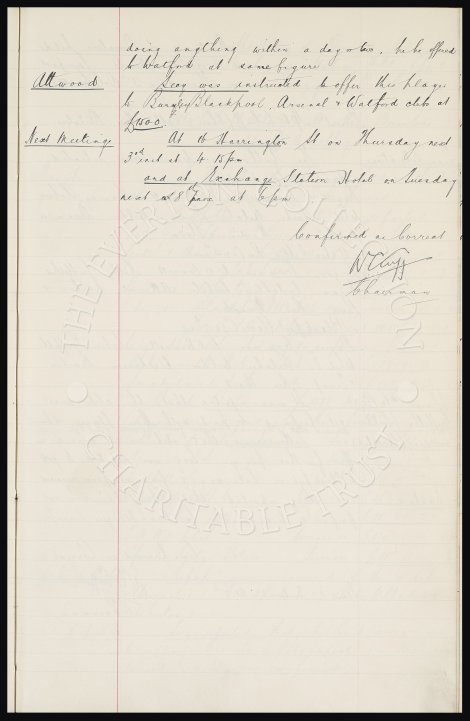 doing anything within a day or two, he be offered
to Watford at same figure
Attwood
Secy was instructed to offer this player
to Burnley Blackpool, Arsenal & Watford clubs at
£1500.
Next Meetings
At 16 Harrington St on Thursday next
3rd inst at 4.15pm
and at Exchange Station Hotel on Tuesday
next 8th at 6pm
Confirmed as Correct
W C Cuff
Chairman
THE EVERTON COLLECTION
CHARITABLE TRUST